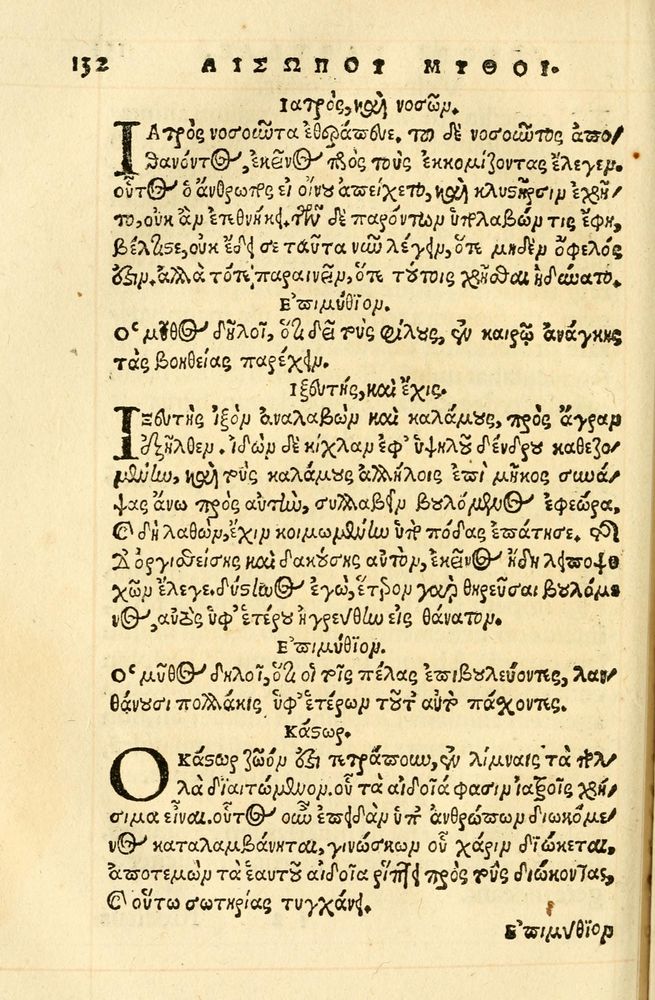 132 ΑΙΣΩΠΟΥ ΜΥΘΟΙ.
Ἰατρὸς, καὶ νοσῶν.
ΙΑτρὸς νοσοῦντα ἐθεράπευε. τοῦ δὲ νοσοῦντος ἀπο/
θανόντος, ἐκεῖνος πρὸς τοὺς ἐκκομίζοντας ἔλεγεν.
οὗτος ὁ ἄνθρωπος εἰ οἴνου ἀπείχετο, καὶ κλυστῆρσιν ἐχρῆ/
το, οὐκ ἂν ἐτεθνήκει. τῶν δὲ παρόντων ὑπολαβών τις ἔφη,
βέλτιστε, οὐκ ἔδει σε ταῦτα νῦν λέγειν, ὅτε μηδὲν ὄφελός
ἐστιν. ἀλλὰ τότε παραινεῖν, ὅτε τούτοις χρῆσθαι ἠδύνατο.
Ἐπιμύθιον.
Ὁ μῦθος δηλοῖ, ὅτι δεῖ τοὺς φίλους, ἐν καιρῷ ἀνάγκης
τὰς βοηθείας παρέχειν.
Ἰξευτὴς, καὶ ἔχις.
ΙΞευτὴς ἰξὸν ἀναλαβὼν καὶ καλάμους, πρὸς ἄγραν
ἐξῆλθεν. ἰδὼν δὲ κίχλαν ἐφ' ὑψηλοῦ δένδρου καθεζο/
μένην, καὶ τοὺς καλάμους ἀλλήλοις ἐπὶ μῆκος συνά/
ψας ἄνω πρὸς αὐτὴν, συλλαβεῖν βουλόμενος ἐφεώρα.
καὶ δὴ λαθὼν, ἔχιν κοιμωμένην ὑπὸ πόδας ἐπάτησε. τῆς
δ' ὀργισθείσης καὶ δακούσης αὐτὸν, ἐκεῖνος ἤδη λειποψυ
χῶν ἔλεγε. δύστηνος ἐγὼ, ἕτερον γὰρ θηρεῦσαι βουλόμε
νος, αὐτὸς ὑφ' ἑτέρου ἠγρεύθην εἰς θάνατον.
Ἐπιμύθιον.
Ὁ μῦθος δηλοῖ, ὅτι οἱ τοῖς πέλας ἐπιβουλεύοντες, λαν/
θάνουσι πολλάκις ὑφ' ἑτέρων τοῦτ' αὐτὸ πάσχοντες.
Κάστωρ.
Ο Κάστωρ ζῶόν ἐστι τετράπουν, ἐν λίμναις τὰ πολ/
λὰ διαιτώμενον. οὗ τὰ αἰδοῖά φασιν ἰατροῖς χρή/
σιμα εἶναι. οὗτος οὖν ἐπειδὰν ὑπ' ἀνθρώπων διωκόμε/
νος καταλαμβάνηται, γινώσκων οὗ χάριν διώκεται,
ἀποτεμὼν τὰ ἑαυτοῦ αἰδοῖα ῥίπτει πρὸς τοὺς διώκοντας,
καὶ οὕτω σωτηρίας τυγχάνει.
Ἐπιμύθιον